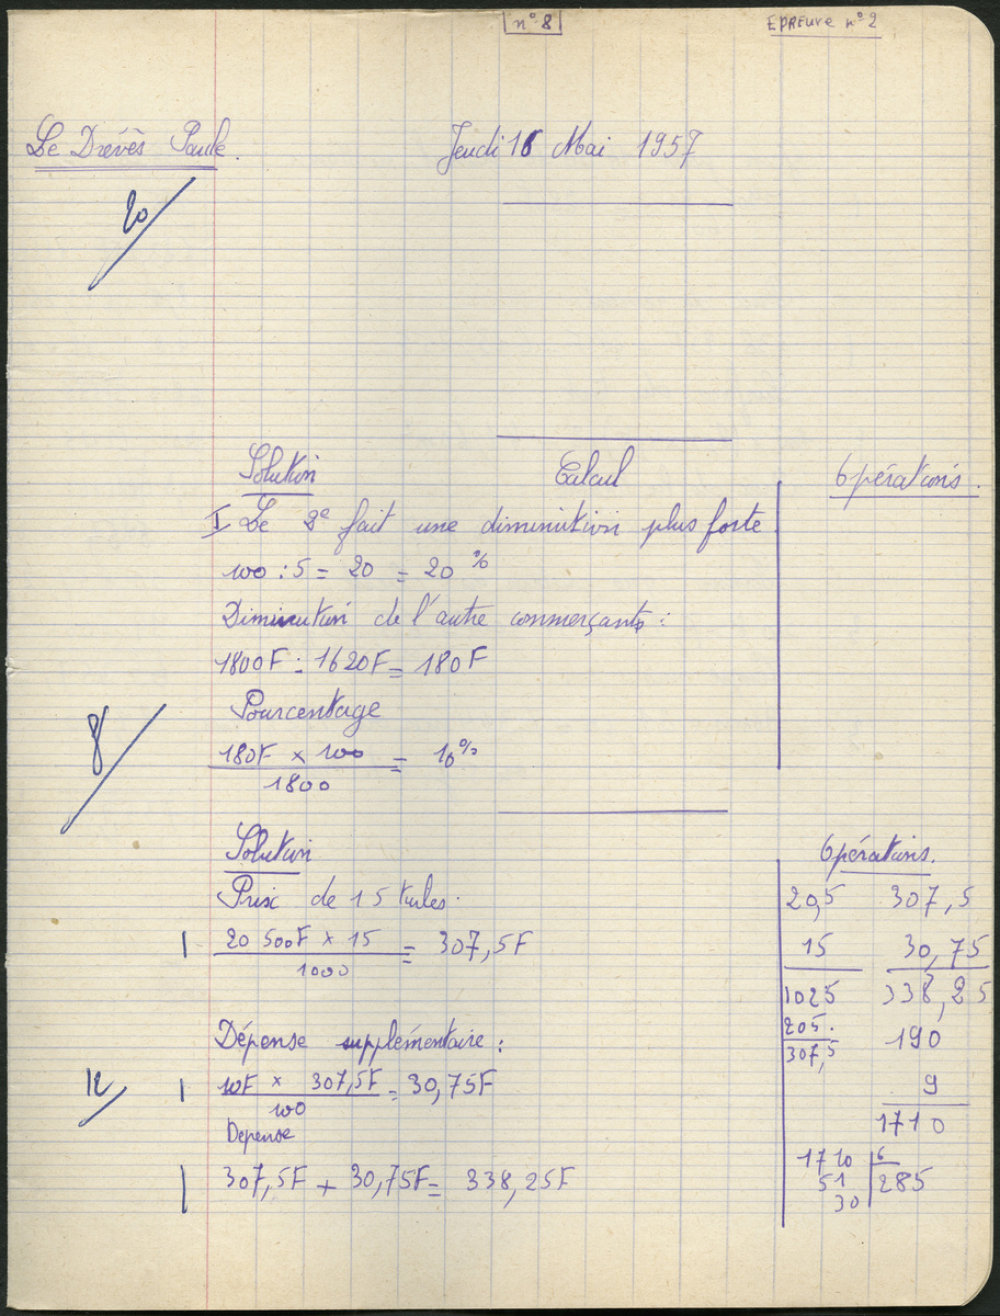 n° 8
EPREUVE n° 2
Le Drévès Paule.
Jeudi 16 Mai 1957
20
Solution
Calcul
Opérations.
I Le 2e fait une diminution plus forte.
100 : 5 = 20 = 20 %
Diminution de l'autre commerçants :
1800F - 1620F = 180F
Pourcentage
180F × 100 = 10%
1800
8
Solution
Opérations.
Prix de 15 tuiles.
1 20 500F × 15 = 307,5F
1000
Dépense supplémentaire :
12
1 10F × 307,5F = 30,75F
100
Depense
1 307,5F + 30,75F = 338,25F
20,5
15
1025
205.
307,5
307,5
30,75
338,25
190
9
1710
1710 6
51 285
30